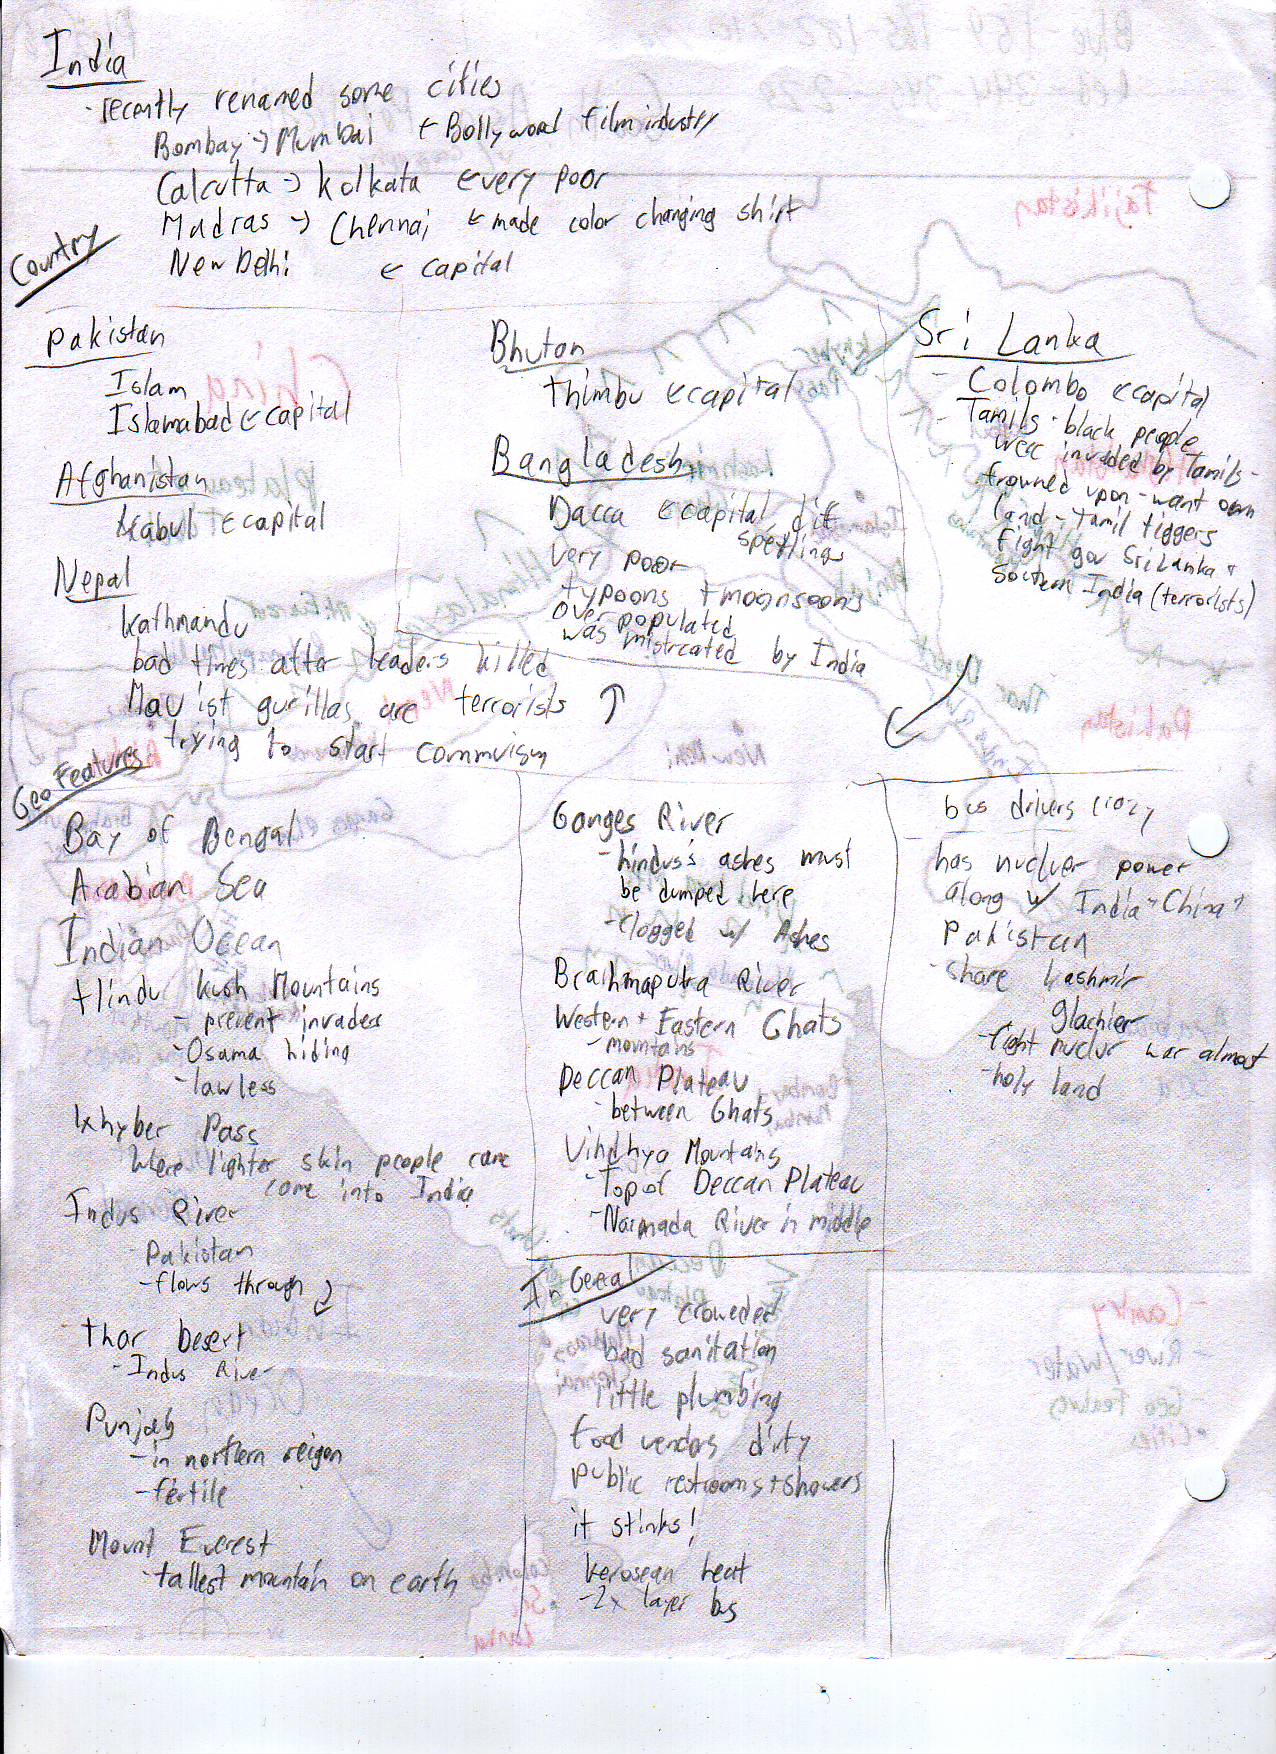 India
- recently renamed some cities
Bombay → Mumbai ← Bollywood film industry
Calcutta → Kolkata ← very poor
Madras → Chennai ← made color changing shirt
New Delhi ← capital
Country
Pakistan
Islam
Islamabad ← capital
Afghanistan
Kabul ← capital
Nepal
Kathmandu
bad times after leaders killed
Mauist gurillas are terrorists
trying to start commuism
Bhutan
Thimbu ← capital
Bangladesh
Dacca ← capital, dif
spellings
very poor
typoons + moonsoons
over populated
was mistreated by India
Sri Lanka
- Colombo ← capital
- Tamils - black people
were invaded by Tamils -
frowned upon - want own
land - Tamil tiggers
fight gov Sri Lanka +
Southern India (terrorists)
Geo Features
Bay of Bengal
Arabian Sea
Indian Ocean
Hindu Kush Mountains
- prevent invaders
- Osama hiding
- lawless
Khyber Pass
Where lighter skin people came
come into India
Indus River
Pakistan
- flows through
Thar Desert
- Indus River
Punjab
- in northern reigon
- fertile
Mount Everest
- tallest mountain on earth
Ganges River
- hindus's ashes must
be dumped here
- clogged w/ Ashes
Brahmaputra River
Western + Eastern Ghats
- mountains
Deccan Plateau
- between Ghats
Vindhya Mountains
- Top of Deccan Plateau
- Narmada River in middle
In Geeal
very croweded
bad sanitation
little plumbing
food vendors dirty
public restrooms + showers
it stinks!
kerosean heat
- 2x layer bus
bus drivers crazy
has nucluer power
along w/ India + China +
Pakistan
- share Kashmir
glachier
- fight nuclur war almost
- holy land